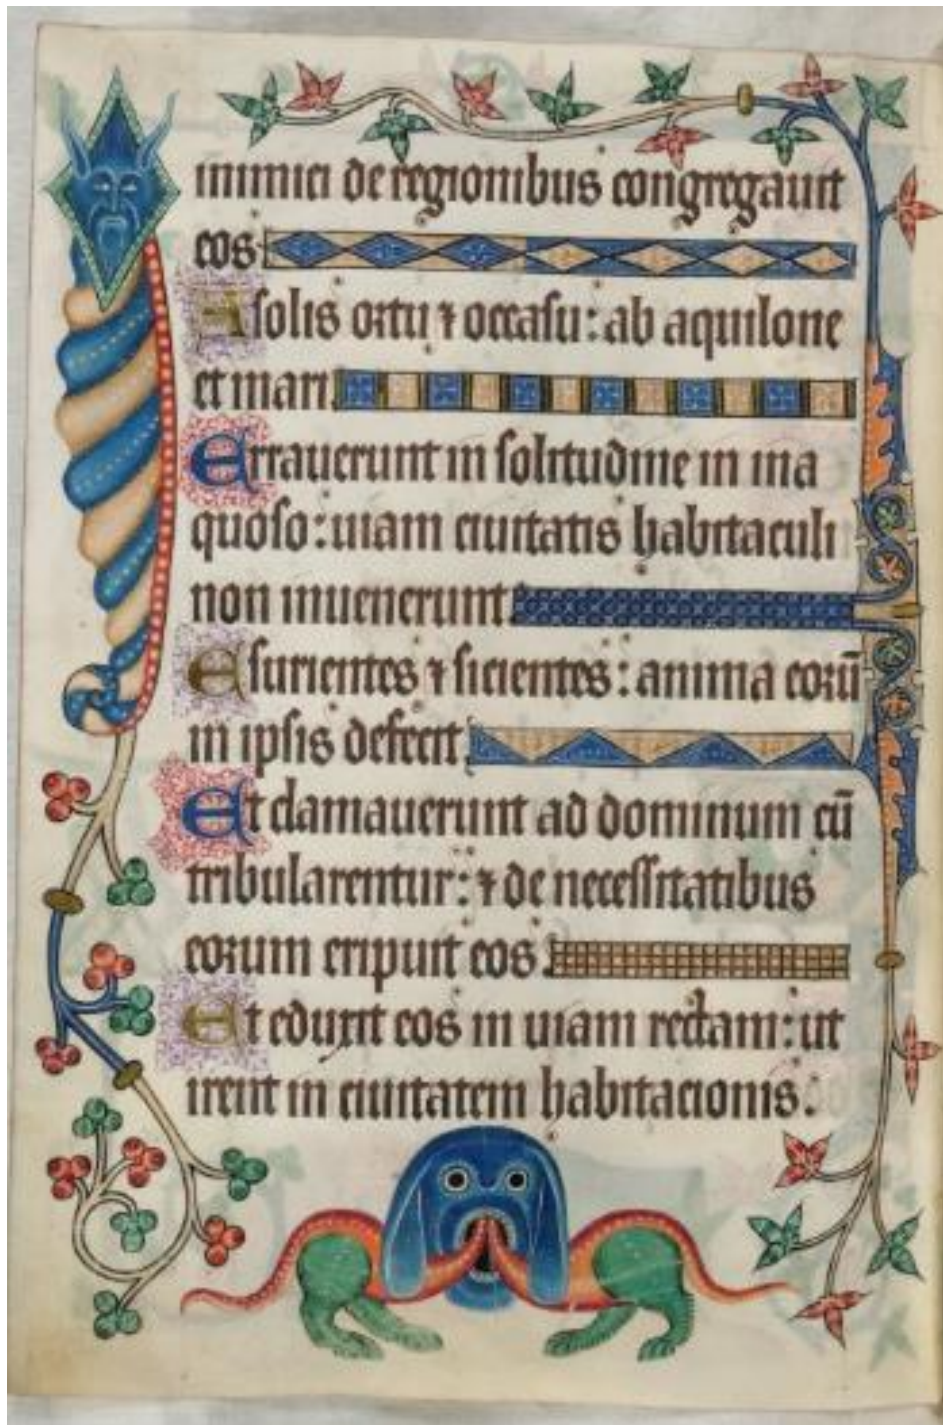 inimici de regionibus congregauit
eos.
A solis ortu ⁊ occasu: ab aquilone
et mari.
Errauerunt in solitudine in ina
quoso: uiam ciuitatis habitaculi
non inuenerunt.
Esurientes ⁊ sicientes: anima eorū
in ipsis defecit.
Et clamauerunt ad dominum cū
tribularentur: ⁊ de necessitatibus
eorum eripuit eos.
Et eduxit eos in uiam rectam: ut
irent in ciuitatem habitacionis.